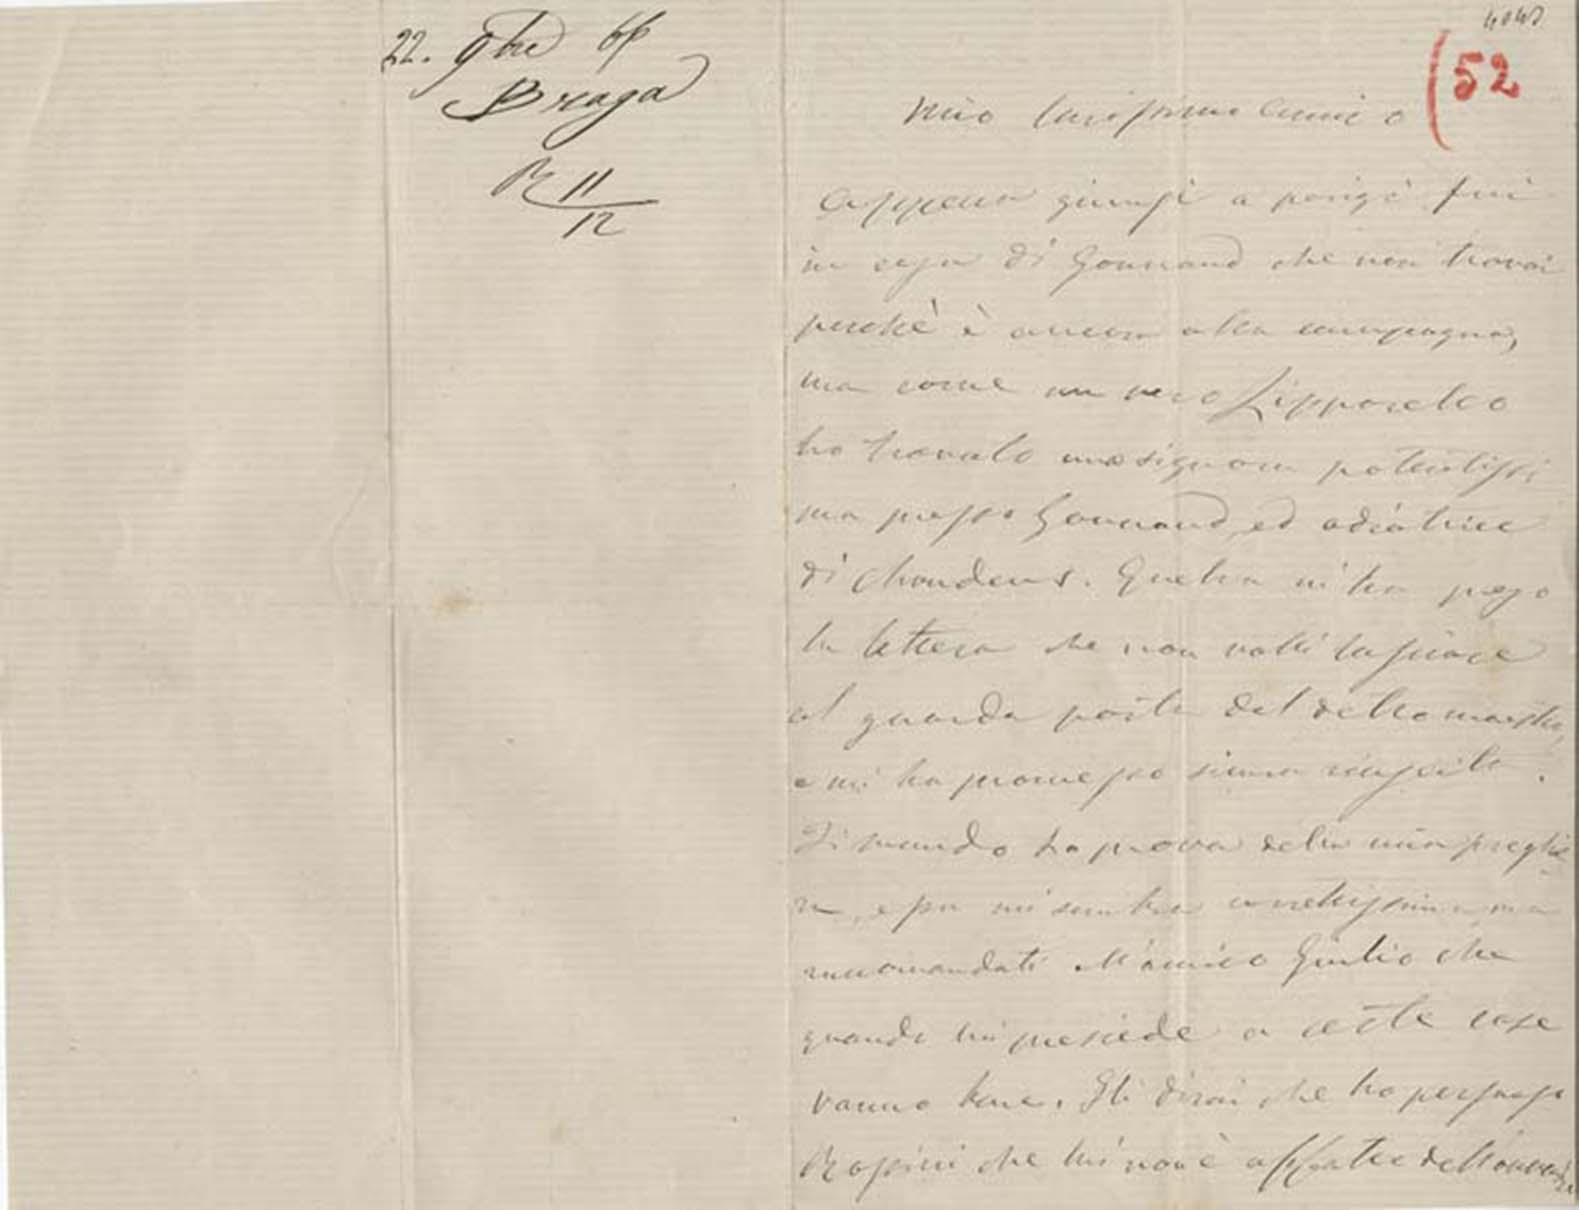 22. 9bre 66
Braga
R 11/12
(52
Mio Carissimo Amico
Appena giunsi a Parigi fui
in casa di Gounaud che non trovai
perchè è ancora alla campagna,
ma come un vero Lipporello
ho trovato una signora potentissi
ma presso Gounaud, ed adiatrice
di Choudens. Quella mi ha preso
la lettera che non volli lasciare
al guarda porta del detto maestro,
e mi ha promesso sicura riuscita.
Ti mando la prova della mia preghie
ra, essa mi sembra correttissima, ma
raccomandati all'amico Giulio che
quando lui presiede a certe cose
vanno bene. Gli dirai che ho persuaso
Rossini che lui non è affatto